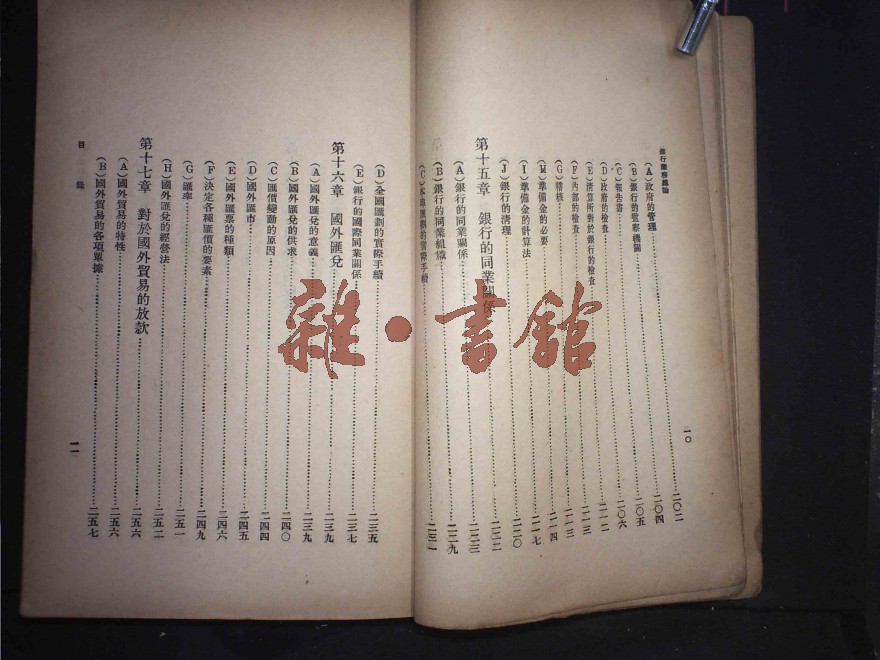 銀行服務總論
(A)政府的管理……二〇二
(B)銀行的監察機關……二〇四
(C)報告書……二〇五
(D)政府的檢查……二〇六
(E)清算所對於銀行的檢查……二一二
(F)內部的檢查……二一三
(G)稽核……二一三
(H)準備金的必要……二一四
(I)準備金的計算法……二一七
(J)銀行的清理……二二〇
第十五章 銀行的同業關係……二二二
(A)銀行的同業關係……二二三
(B)銀行的同業組織……二二九
(C)匯劃的實際手續……二三一
一〇
(D)全國匯劃的實際手續……二三五
(E)銀行的國際同業關係……二三七
第十六章 國外匯兌……二三九
(A)國外匯兌的意義……二三九
(B)國外匯兌的供求……二四〇
(C)匯價變動的原因……二四四
(D)國外匯市……二四五
(E)國外匯票的種類……二四六
(F)決定各種匯價的要素……二四九
(G)匯率……二五一
(H)國外匯兌的經營法……二五二
第十七章 對於國外貿易的放款……二五六
(A)國外貿易的特性……二五六
(B)國外貿易的各項單據……二五七
目錄
一一
雜·書館